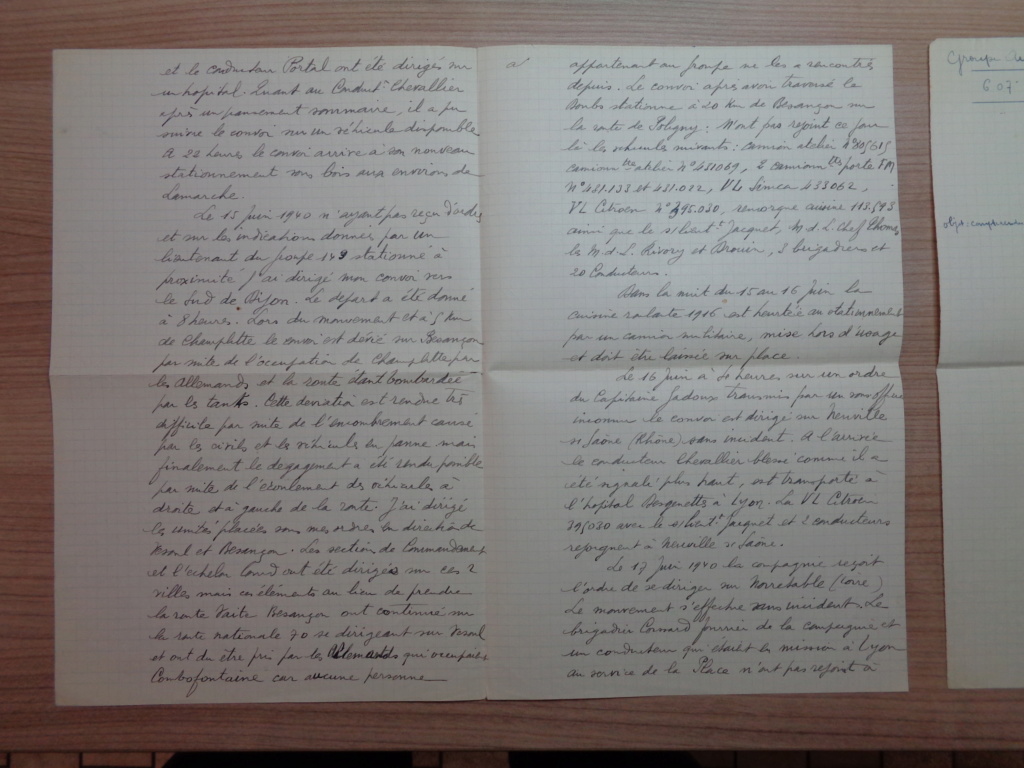 et le conducteur Portal ont été dirigés sur
un hopital. Quant au Conduct.r Chevallier
après un pansement sommaire, il a pu
suivre le convoi sur un véhicule disponible
A 22 heures le convoi arrive à son nouveau
stationnement sous bois aux environs de
Lamarche.
Le 15 juin 1940 n'ayant pas reçu d'ordres
et sur les indications données par un
lieutenant du groupe 149 stationné à
proximité j'ai dirigé mon convoi vers
le Sud de Dijon. Le départ a été donné
à 8 heures. Lors du mouvement et à 5 km
de Champlitte le convoi est dévié sur Besançon
par suite de l'occupation de Champlitte par
les Allemands et la route étant bombardée
par les tanks. Cette déviation est rendue très
difficile par suite de l'encombrement causé
par les civils et les véhicules en panne mais
finalement le dégagement a été rendu possible
par suite de l'écoulement des véhicules à
droite et à gauche de la route. J'ai dirigé
les unités placées sous mes ordres en direction de
Vesoul et Besançon. Les section de Commandement
et l'échelon lourd ont été dirigés sur ces 2
villes mais ces éléments au lieu de prendre
la route Besançon ont continué sur
la route nationale 70 se dirigeant sur Vesoul
et ont du être pris par les Allemands qui occupaient
Combofontaine car aucune personne
appartenant au groupe ne les a rencontrés
depuis. Le convoi après avoir traversé le
Doubs stationne à 20 km de Besançon sur
la route de Poligny. N'ont pas rejoint ce jour
là les véhicules suivants: camion atelier
camionn.tte atelier n° 451069, 2 camionn.ttes porte FM
N° 481.133 et 431.012, VL Simca 433062,
VL Citroën n° 395.030, remorque cuisine 113.593
ainsi que le s/lieut.t Jacquet, M.d.L. Chef Thomas
les M.d.L. Rivory et Drouin, 3 brigadiers et
20 Conducteurs.
Dans la nuit du 15 au 16 juin la
cuisine roulante 1916 est heurtée au stationnement
par un camion militaire, mise hors d'usage
et doit être laissée sur place.
Le 16 juin à 4 heures sur un ordre
du Capitaine Jadoux transmis par un sous officier
inconnu le convoi est dirigé sur Neuville
s/ Saône (Rhône) sans incident. A l'arrivée
le conducteur Chevallier blessé comme il a
été signalé plus haut, est transporté à
l'hopital Desgenettes à Lyon. La VL Citroën
395030 avec le s/lieut.t Jacquet et 2 conducteurs
rejoignent à Neuville s/ Saône.
Le 17 juin 1940 la compagnie reçoit
l'ordre de se diriger sur Noirétable (Loire)
Le mouvement s'effectue sans incident. Le
brigadier Connard fourrier de la compagnie et
un conducteur qui étaient en mission à Lyon
au service de la Place n'ont pas rejoint à
Groupe de
607